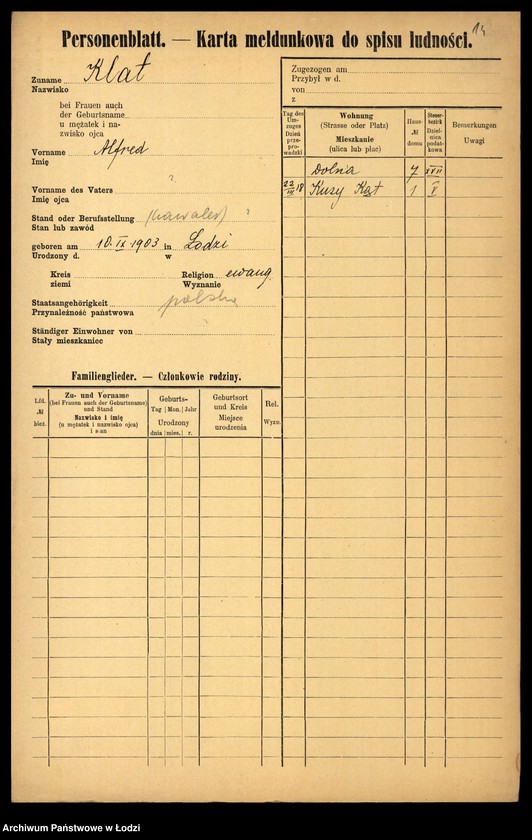 14
Personenblatt. — Karta meldunkowa do spisu ludności.
Zuname Klat
Nazwisko
bei Frauen auch
der Geburtsname
u mężatek i na-
zwisko ojca
Vorname Alfred
Imię
Vorname des Vaters ?
Imię ojca
Stand oder Berufsstellung (kawaler) ?
Stan lub zawód
geboren am 10. IX 1903 in Łodzi
Urodzony d. w
Kreis Religion ewang.
ziemi Wyznanie
Staatsangehörigkeit polska
Przynależność państwowa
Ständiger Einwohner von
Stały mieszkaniec
Zugezogen am
Przybył w d.
von
z
Tag des Um-zuges Dzień prze-prowadzki
Wohnung (Strasse oder Platz) Mieszkanie (ulica lub plac)
Haus- № domu
Steuer-bezirk Dziel-nica podat-kowa
Bemerkungen Uwagi
Dolna 7 XVII
22/III 18 Kuzy Kąt 1 V
Familienglieder. — Członkowie rodziny.
Lfd. № bież.
Zu- und Vorname
(bei Frauen auch der Geburtsname)
und Stand
Nazwisko i imię
(u mężatek i nazwisko ojca)
i stan
Geburts-
Tag | Mon. | Jahr
Urodzony
dnia | mies. | r.
Geburtsort
und Kreis
Miejsce
urodzenia
Rel.
Wyzn.
Archiwum Państwowe w Łodzi